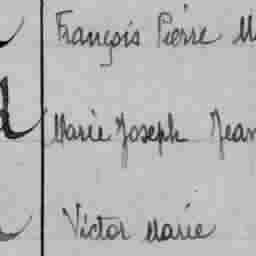 François Pierre M
Marie Joseph Jean
Victor Marie